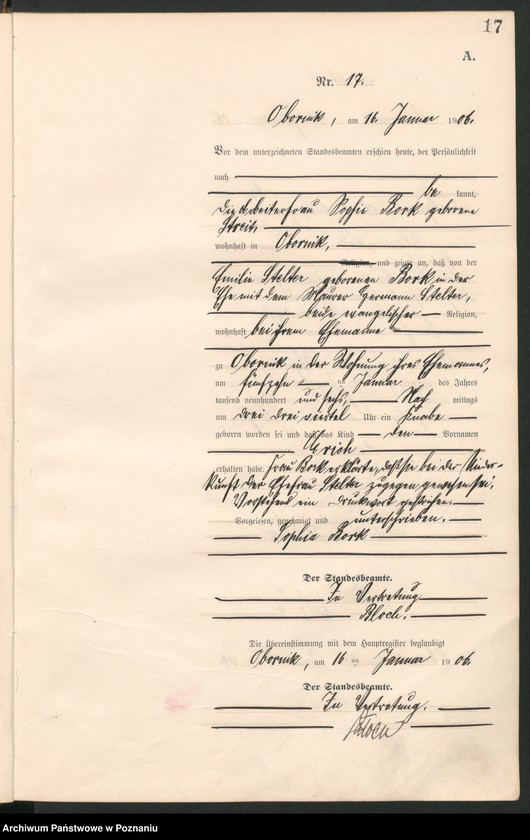 17
A.
Nr. 17.
Obornik, am 16. Januar 1906.
Vor dem unterzeichneten Standesbeamten erschien heute, der Persönlichkeit
nach
be kannt,
die Arbeiterfrau Sophie Bork geborene
wohnhaft in Obornik,
Religion, und zeigte an, daß von der
Emilie Stelter geborenen Bork in der
Ehe mit dem Maurer Hermann Stelter,
beide evangelischer Religion,
wohnhaft bei ihrem Ehemanne
zu Obornik in der Wohnung ihres Ehemannes,
am fünfzehn ten Januar des Jahres
tausend neunhundert und sechs, Nach mittags
um drei drei viertel Uhr ein Knabe
geboren worden sei und daß das Kind den Vornamen
Erich
erhalten habe. Frau Bork erklärte, daß sie bei der Nieder-
kunft der Ehefrau Stelter zugegen gewesen sei.
Vorstehend ein Druckwort gestrichen.
Vorgelesen, genehmigt und unterschrieben.
Sophie Bork
Der Standesbeamte.
In Vertretung
Bloch.
Die Übereinstimmung mit dem Hauptregister beglaubigt
Obornik, am 16 ten Januar 1906.
Der Standesbeamte.
In Vertretung.
Bloch
Archiwum Państwowe w Poznaniu